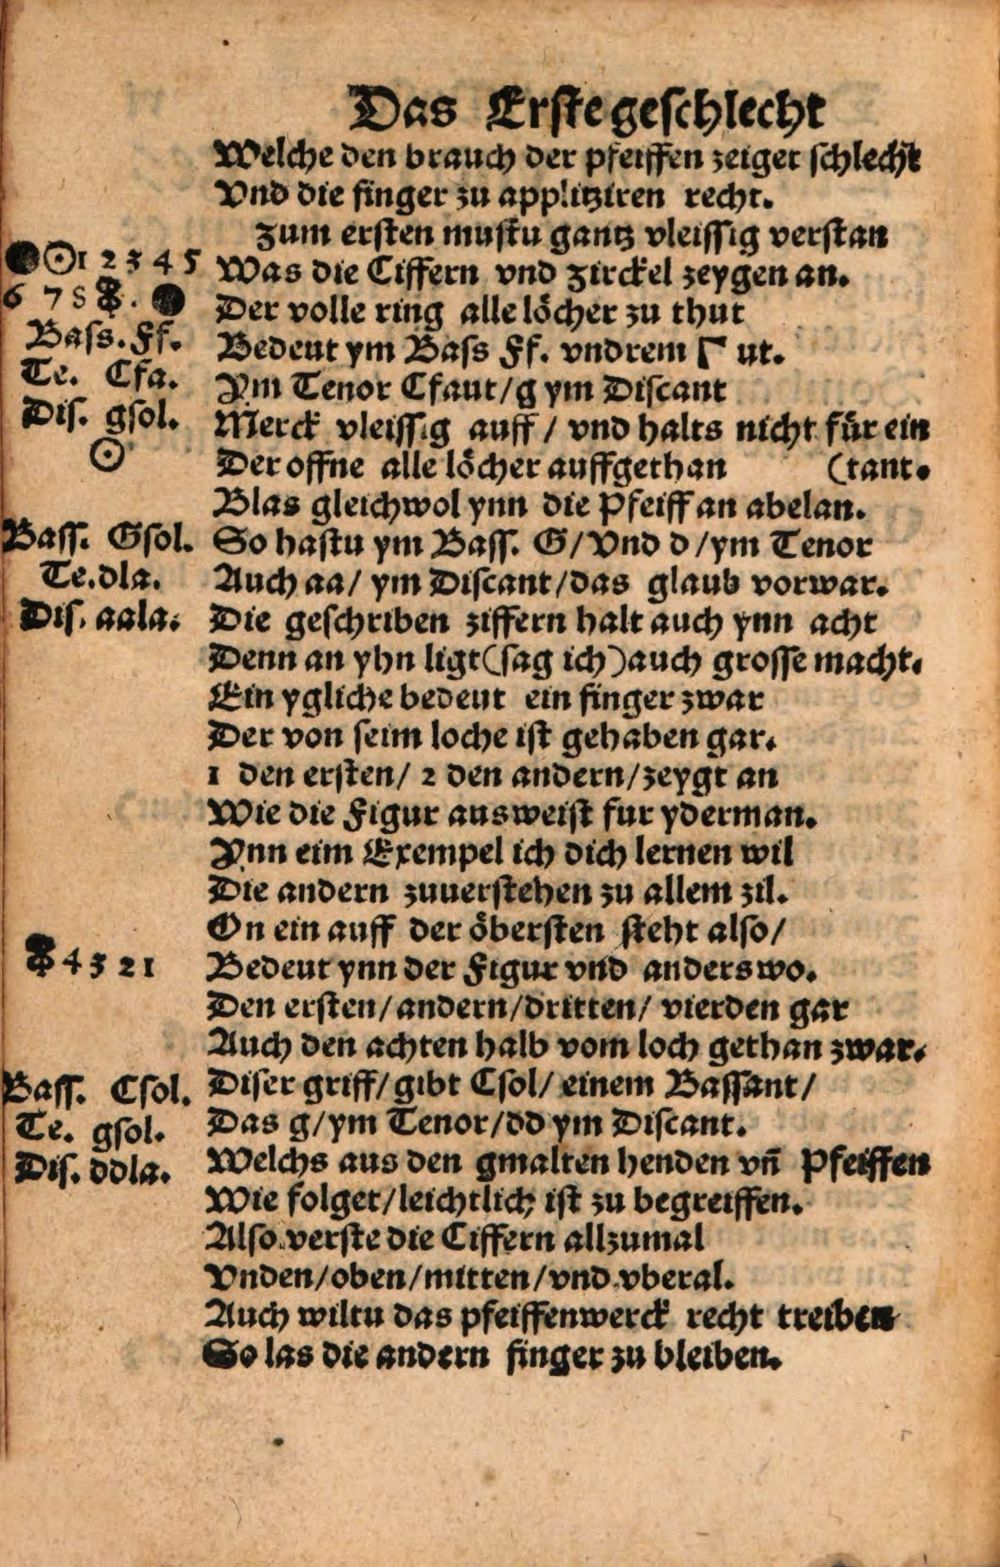 Das Erste geschlecht
Welche den brauch der pfeiffen zeiget schlecht
Vnd die finger zu applitziren recht.
Zum ersten mustu gantz vleissig verstan
●☉1 2 3 4 5 Was die Ciffern vnd zirckel zeygen an.
6 7 8 . ● Der volle ring alle löcher zu thut
Bass. Ff. Bedeut ym Bass Ff. vndrem Γ ut.
Te. Cfa. Ym Tenor Cfaut/g ym Discant
Dis. gsol. Merck vleissig auff / vnd halts nicht für ein
☉ Der offne alle löcher auffgethan (tant.
Blas gleichwol ynn die Pfeiff an abelan.
Bass. Gsol. So hastu ym Bass. G/Vnd d /ym Tenor
Te. dla. Auch aa/ ym Discant/das glaub vorwar.
Dis. aala. Die geschriben ziffern halt auch ynn acht
Denn an yhn ligt(sag ich)auch grosse macht.
Ein ygliche bedeut ein finger zwar
Der von seim loche ist gehaben gar.
1 den ersten/ 2 den andern/zeygt an
Wie die Figur ausweist fur yderman.
Ynn eim Exempel ich dich lernen wil
Die andern zuuerstehen zu allem zil.
On ein auff der öbersten steht also/
8 4 3 2 1 Bedeut ynn der Figur vnd anderswo.
Den ersten/andern/dritten/ vierden gar
Auch den achten halb vom loch gethan zwar.
Bass. Csol. Diser griff/gibt Csol/ einem Bassant/
Te. gsol. Das g/ym Tenor/dd ym Discant.
Dis. ddla. Welchs aus den gmalten henden vñ Pfeiffen
Wie folget/leichtlich ist zu begreiffen.
Also verste die Ciffern allzumal
Vnden/oben/mitten/vnd vberal.
Auch wiltu das pfeiffenwerck recht treiben
So las die andern finger zu bleiben.